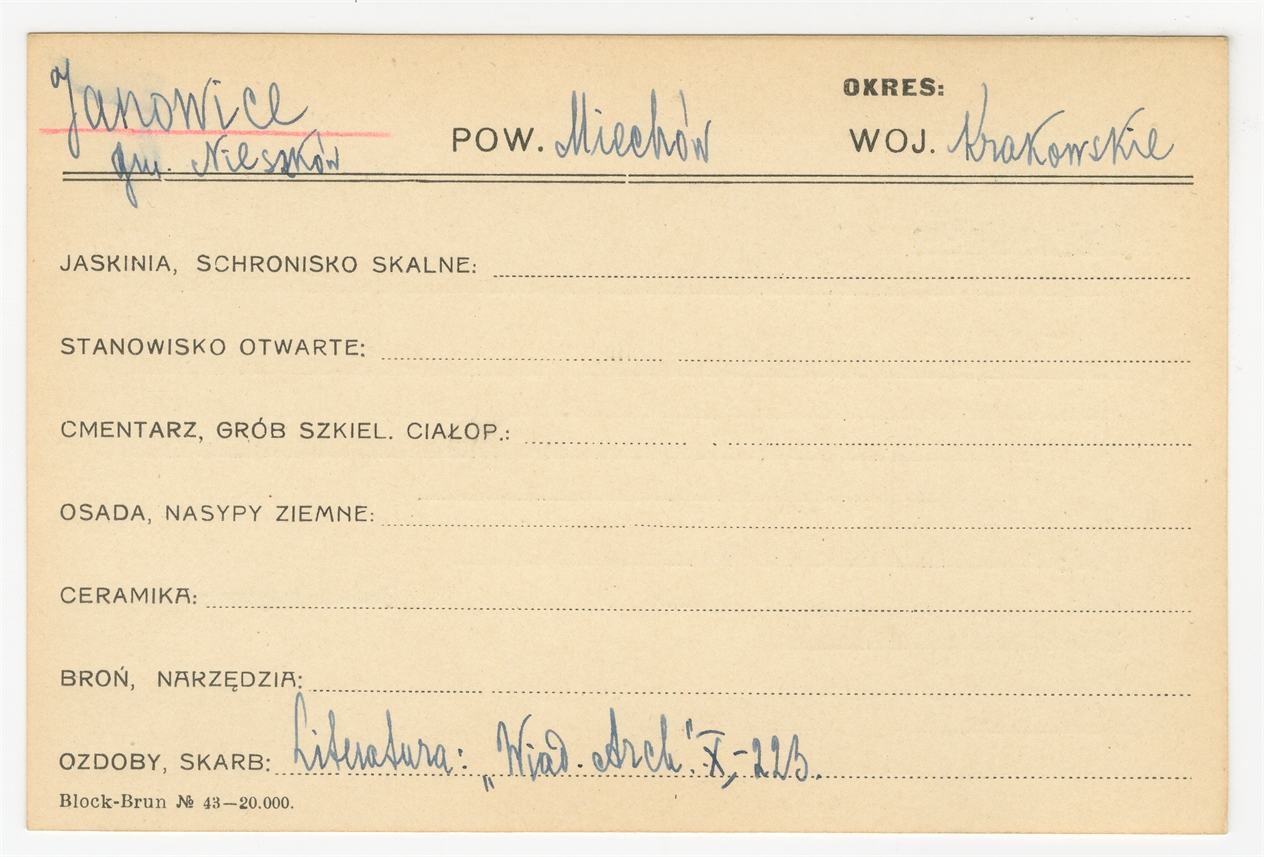 Janowice
OKRES:
gm. Nieszków
POW. Miechów
WOJ. Krakowskie
JASKINIA, SCHRONISKO SKALNE:
STANOWISKO OTWARTE:
CMENTARZ, GRÓB SZKIEL. CIAŁOP.:
OSADA, NASYPY ZIEMNE:
CERAMIKA:
BROŃ, NARZĘDZIA:
OZDOBY, SKARB: Literatura: „Wiad. Arch". X,-223.
Block-Brun № 43—20.000.